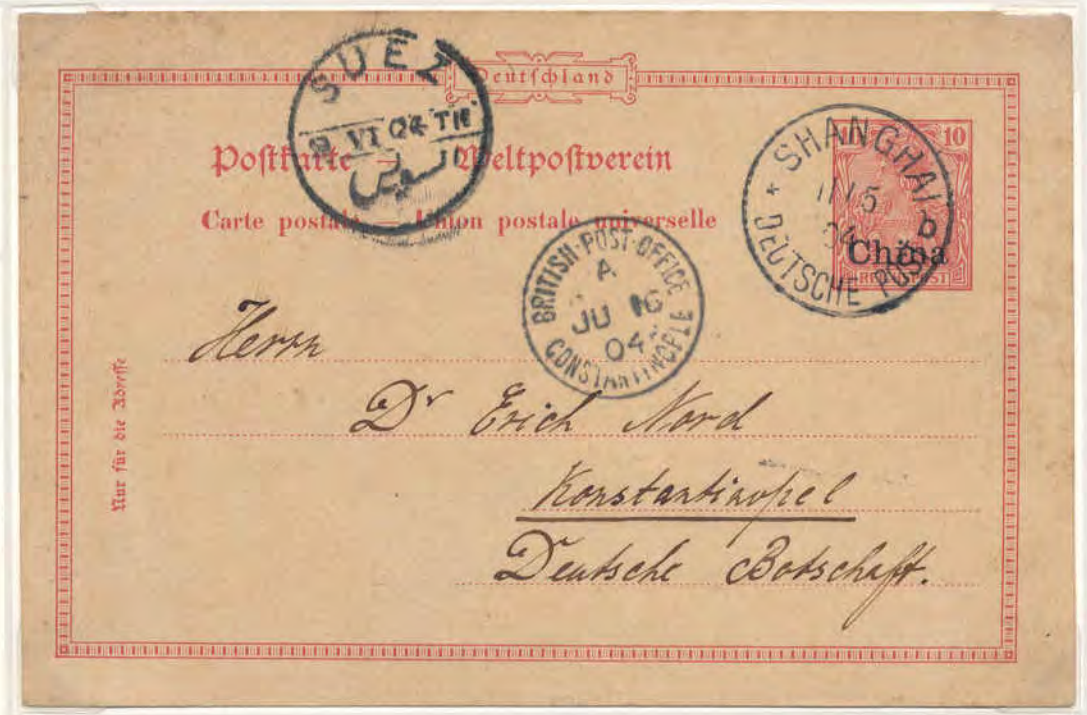 Deutschland
SUEZ
VI 04 TH
السويس
Postkarte — Weltpostverein
Carte postale — Union postale universelle
10
REICHSPOST
China
* SHANGHAI b
11/5
04
DEUTSCHE POST
BRITISH·POST·OFFICE
A
JU 16
04
CONSTANTINOPLE
Nur für die Adresse
Herrn
Dr Erich Nord
Konstantinopel
Deutsche Botschaft.